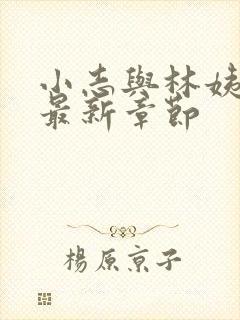 小志與林姨
最新章節
楊原京子